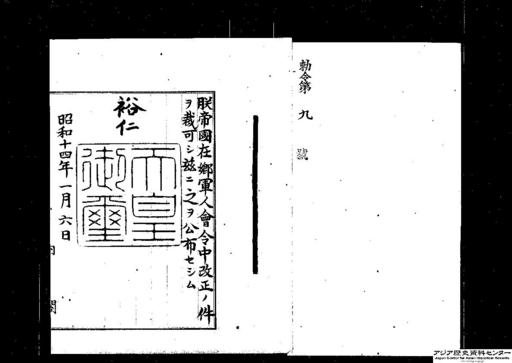 勅令第九號
朕帝國在郷軍人會令中改正ノ件
ヲ裁可シ茲ニ之ヲ公布セシム
裕仁
天皇
御璽
昭和十四年一月六日
内閣
アジア歴史資料センター
Japan Center for Asian Historical Records